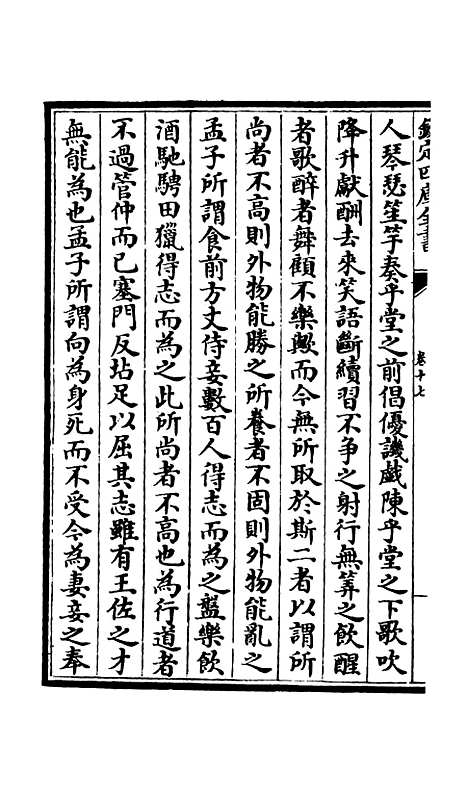 欽定四庫全書
卷十七
人琴瑟笙竽奏乎堂之前倡優譏戯陳乎堂之下歌吹
降升獻酬去來笑語斷續習不争之射行無筭之飲醒
者歌醉者舞顧不樂歟而今無所取於斯二者以謂所
尚者不高則外物能勝之所養者不固則外物能亂之
孟子所謂食前方丈侍妾數百人得志而為之盤樂飲
酒馳騁田獵得志而為之此所尚者不高也為行道者
不過管仲而已塞門反坫足以屈其志雖有王佐之才
無能為也孟子所謂向為身死而不受今為妻妾之奉